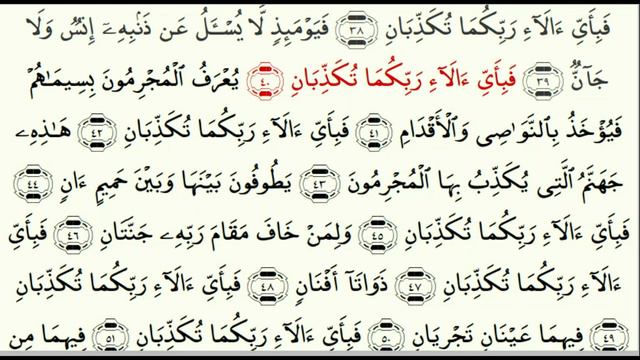 فَبِأَيِّ ءَالَآءِ رَبِّكُمَا تُكَذِّبَانِ ٣٨ فَيَوْمَئِذٍ لَّا يُسْـَٔلُ عَن ذَنۢبِهِۦٓ إِنسٌ وَلَا
جَآنٌّ ٣٩ فَبِأَيِّ ءَالَآءِ رَبِّكُمَا تُكَذِّبَانِ ٤٠ يُعْرَفُ الْمُجْرِمُونَ بِسِيمَاهُمْ
فَيُؤْخَذُ بِالنَّوَاصِي وَالْأَقْدَامِ ٤١ فَبِأَيِّ ءَالَآءِ رَبِّكُمَا تُكَذِّبَانِ ٤٢ هَـٰذِهِۦ
جَهَنَّمُ الَّتِي يُكَذِّبُ بِهَا الْمُجْرِمُونَ ٤٣ يَطُوفُونَ بَيْنَهَا وَبَيْنَ حَمِيمٍ ءَانٍ ٤٤
فَبِأَيِّ ءَالَآءِ رَبِّكُمَا تُكَذِّبَانِ ٤٥ وَلِمَنْ خَافَ مَقَامَ رَبِّهِۦ جَنَّتَانِ ٤٦ فَبِأَيِّ
ءَالَآءِ رَبِّكُمَا تُكَذِّبَانِ ٤٧ ذَوَاتَآ أَفْنَانٍ ٤٨ فَبِأَيِّ ءَالَآءِ رَبِّكُمَا تُكَذِّبَانِ
٤٩ فِيهِمَا عَيْنَانِ تَجْرِيَانِ ٥٠ فَبِأَيِّ ءَالَآءِ رَبِّكُمَا تُكَذِّبَانِ ٥١ فِيهِمَا مِن